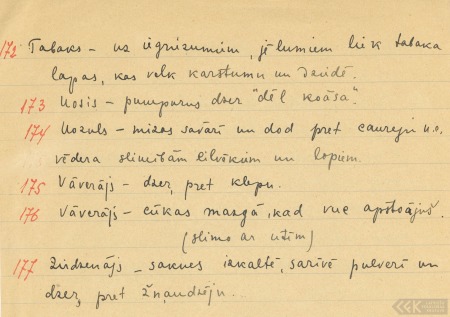 172 Tabaks – uz iegriezumiem, jēlumiem liek tabaka
lapas, kas velk karstumu un dziedē.
173 Uosis – pumpurus dzer "dēļ koāsa".
174 Uozuls – mizas savāri un dod pret caureju u.c.
vēdera slimībām cilvēkiem un lopiem.
175 Vāverājs – dzer, pret klepu.
176 Vāverājs – cūkas mazgā, kad vue apstoājuš.
(slimo ar utīm)
177 Zirdzenājs – saknes izkaltē, sarīvē pulverī un
dzer, pret žņaudzēju...